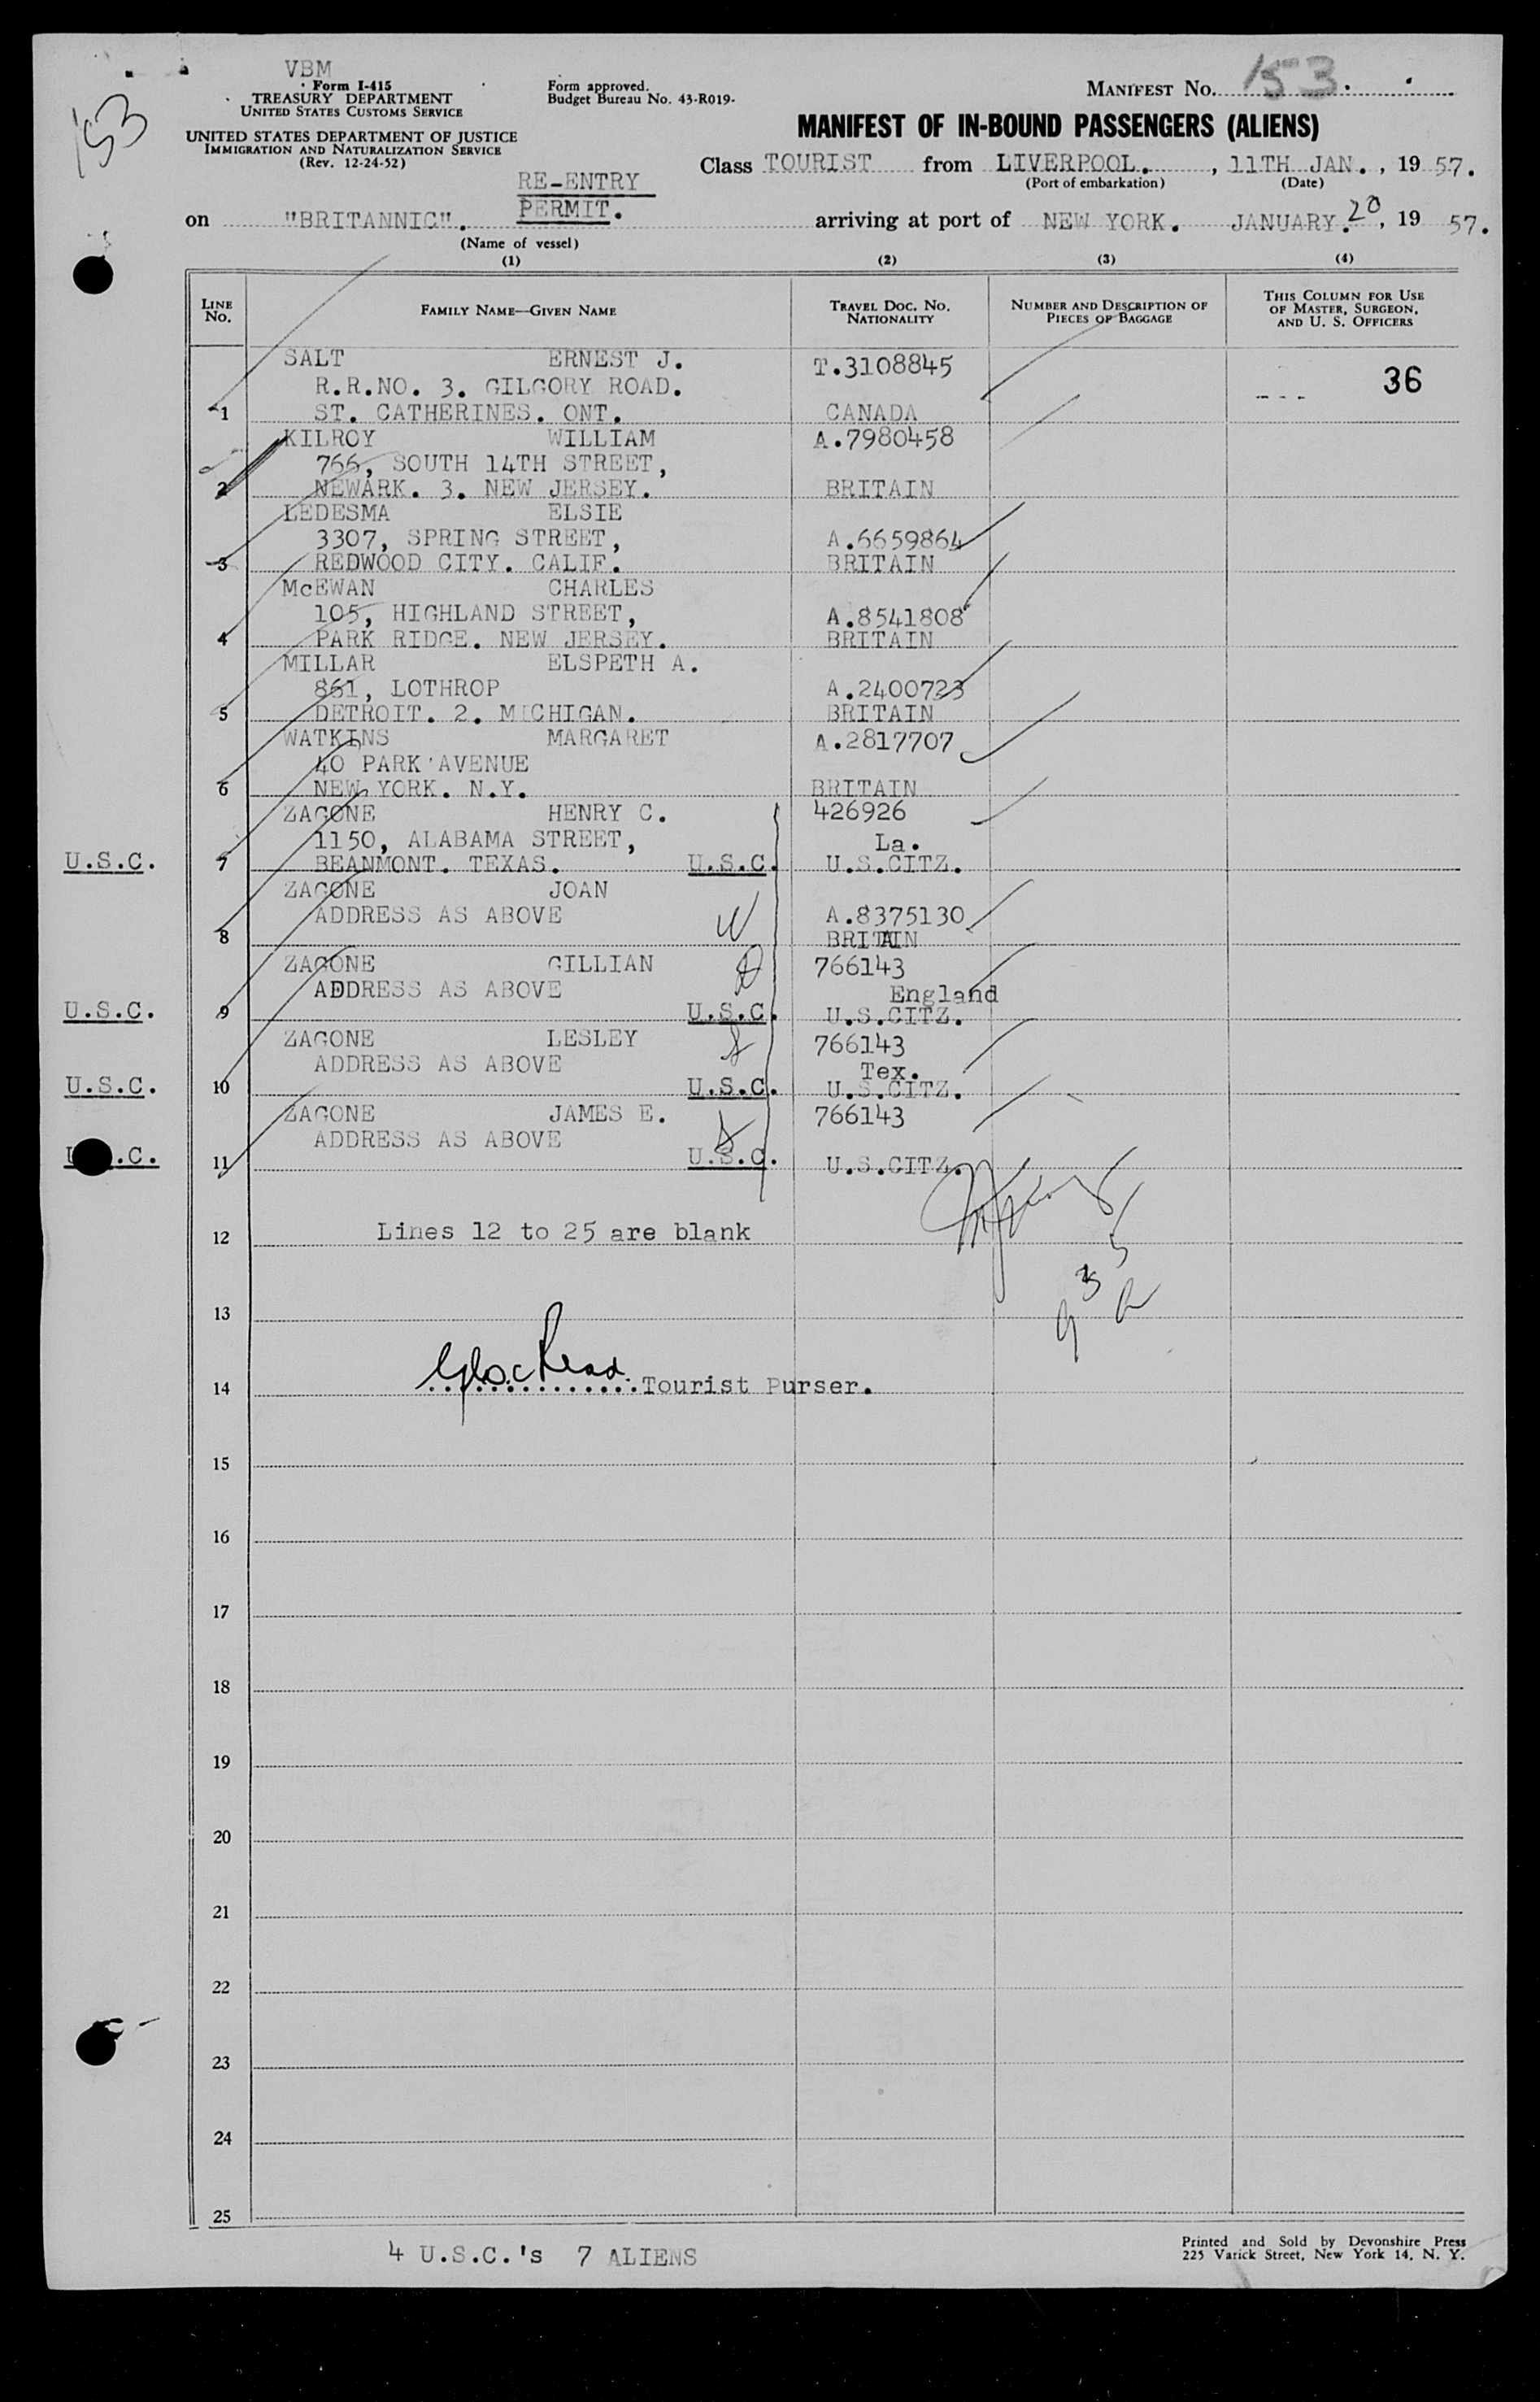 VBM
153
Form I-415
TREASURY DEPARTMENT
UNITED STATES CUSTOMS SERVICE
UNITED STATES DEPARTMENT OF JUSTICE
IMMIGRATION AND NATURALIZATION SERVICE
(Rev. 12-24-52)
Form approved.
Budget Bureau No. 43-R019-
MANIFEST No. 153.
MANIFEST OF IN-BOUND PASSENGERS (ALIENS)
Class TOURIST from LIVERPOOL. , 11TH JAN. , 19 57.
(Port of embarkation) (Date)
RE-ENTRY
PERMIT.
on "BRITANNIC". arriving at port of NEW YORK. JANUARY. 20, 19 57.
(Name of vessel)
(1) (2) (3) (4)
LINE No. FAMILY NAME—GIVEN NAME TRAVEL DOC. NO. NATIONALITY NUMBER AND DESCRIPTION OF PIECES OF BAGGAGE THIS COLUMN FOR USE OF MASTER, SURGEON, AND U. S. OFFICERS
SALT ERNEST J. T.3108845 36
R.R.NO. 3. GILGORY ROAD.
1 ST. CATHERINES. ONT. CANADA
KILROY WILLIAM A.7980458
766, SOUTH 14TH STREET,
2 NEWARK. 3. NEW JERSEY. BRITAIN
LEDESMA ELSIE
3307, SPRING STREET, A.6659864
3 REDWOOD CITY. CALIF. BRITAIN
McEWAN CHARLES
105, HIGHLAND STREET, A.8541808
4 PARK RIDGE. NEW JERSEY. BRITAIN
MILLAR ELSPETH A.
861, LOTHROP A.2400723
5 DETROIT. 2. MICHIGAN. BRITAIN
WATKINS MARGARET A.2817707
40 PARK AVENUE
6 NEW YORK. N.Y. BRITAIN
ZAGONE HENRY C. 426926
1150, ALABAMA STREET, La.
U.S.C. 7 BEANMONT. TEXAS. U.S.C. U.S.CITZ.
ZAGONE JOAN
ADDRESS AS ABOVE W A.8375130
8 BRITAIN
ZAGONE GILLIAN D 766143
ADDRESS AS ABOVE England
U.S.C. 9 U.S.C. U.S.CITZ.
ZAGONE LESLEY 766143
ADDRESS AS ABOVE Tex.
U.S.C. 10 U.S.C. U.S.CITZ.
ZAGONE JAMES E. 766143
ADDRESS AS ABOVE
.C. 11 U.S.C. U.S.CITZ.
12 Lines 12 to 25 are blank
13
14 Read. Tourist Purser.
15
16
17
18
19
20
21
22
23
24
25
4 U.S.C.'s 7 ALIENS
Printed and Sold by Devonshire Press
225 Varick Street, New York 14, N. Y.